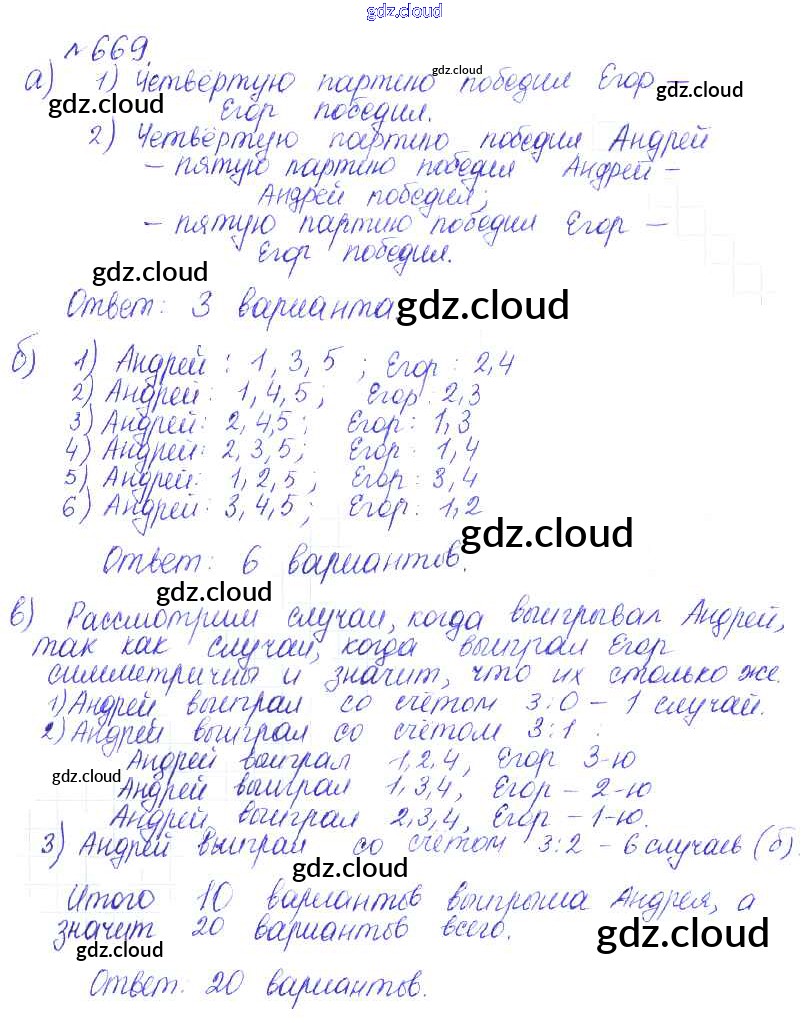 gdz.cloud
№669.
а) 1) Четвёртую партию победил Егор —
gdz.cloud
gdz.cloud
gdz.cloud
Егор победил.
2) Четвёртую партию победил Андрей
– пятую партию победил Андрей –
Андрей победил;
– пятую партию победил Егор –
Егор победил.
gdz.cloud
Ответ: 3 варианта
gdz.cloud
б) 1) Андрей: 1, 3, 5; Егор: 2,4
2) Андрей: 1,4,5; Егор: 2,3
3) Андрей: 2,4,5; Егор: 1,3
4) Андрей: 2,3,5; Егор: 1,4
5) Андрей: 1,2,5; Егор: 3,4
6) Андрей: 3,4,5; Егор: 1,2
gdz.cloud
Ответ: 6 вариантов.
gdz.cloud
в) Рассмотрим случаи, когда выигрывал Андрей,
так как случаи, когда выиграл Егор
симметричны и значит, что их столько же.
1) Андрей выиграл со счётом 3:0 – 1 случай.
2) Андрей выиграл со счётом 3:1 :
Андрей выиграл 1,2,4, Егор 3-ю
gdz.cloud
Андрей выиграл 1,3,4, Егор – 2-ю
Андрей выиграл 2,3,4, Егор – 1-ю.
3) Андрей выиграл со счётом 3:2 – 6 случаев (б).
gdz.cloud
Итого 10 вариантов выигрыша Андрея, а
значит 20 вариантов всего.
gdz.cloud
gdz.cloud
Ответ: 20 вариантов.